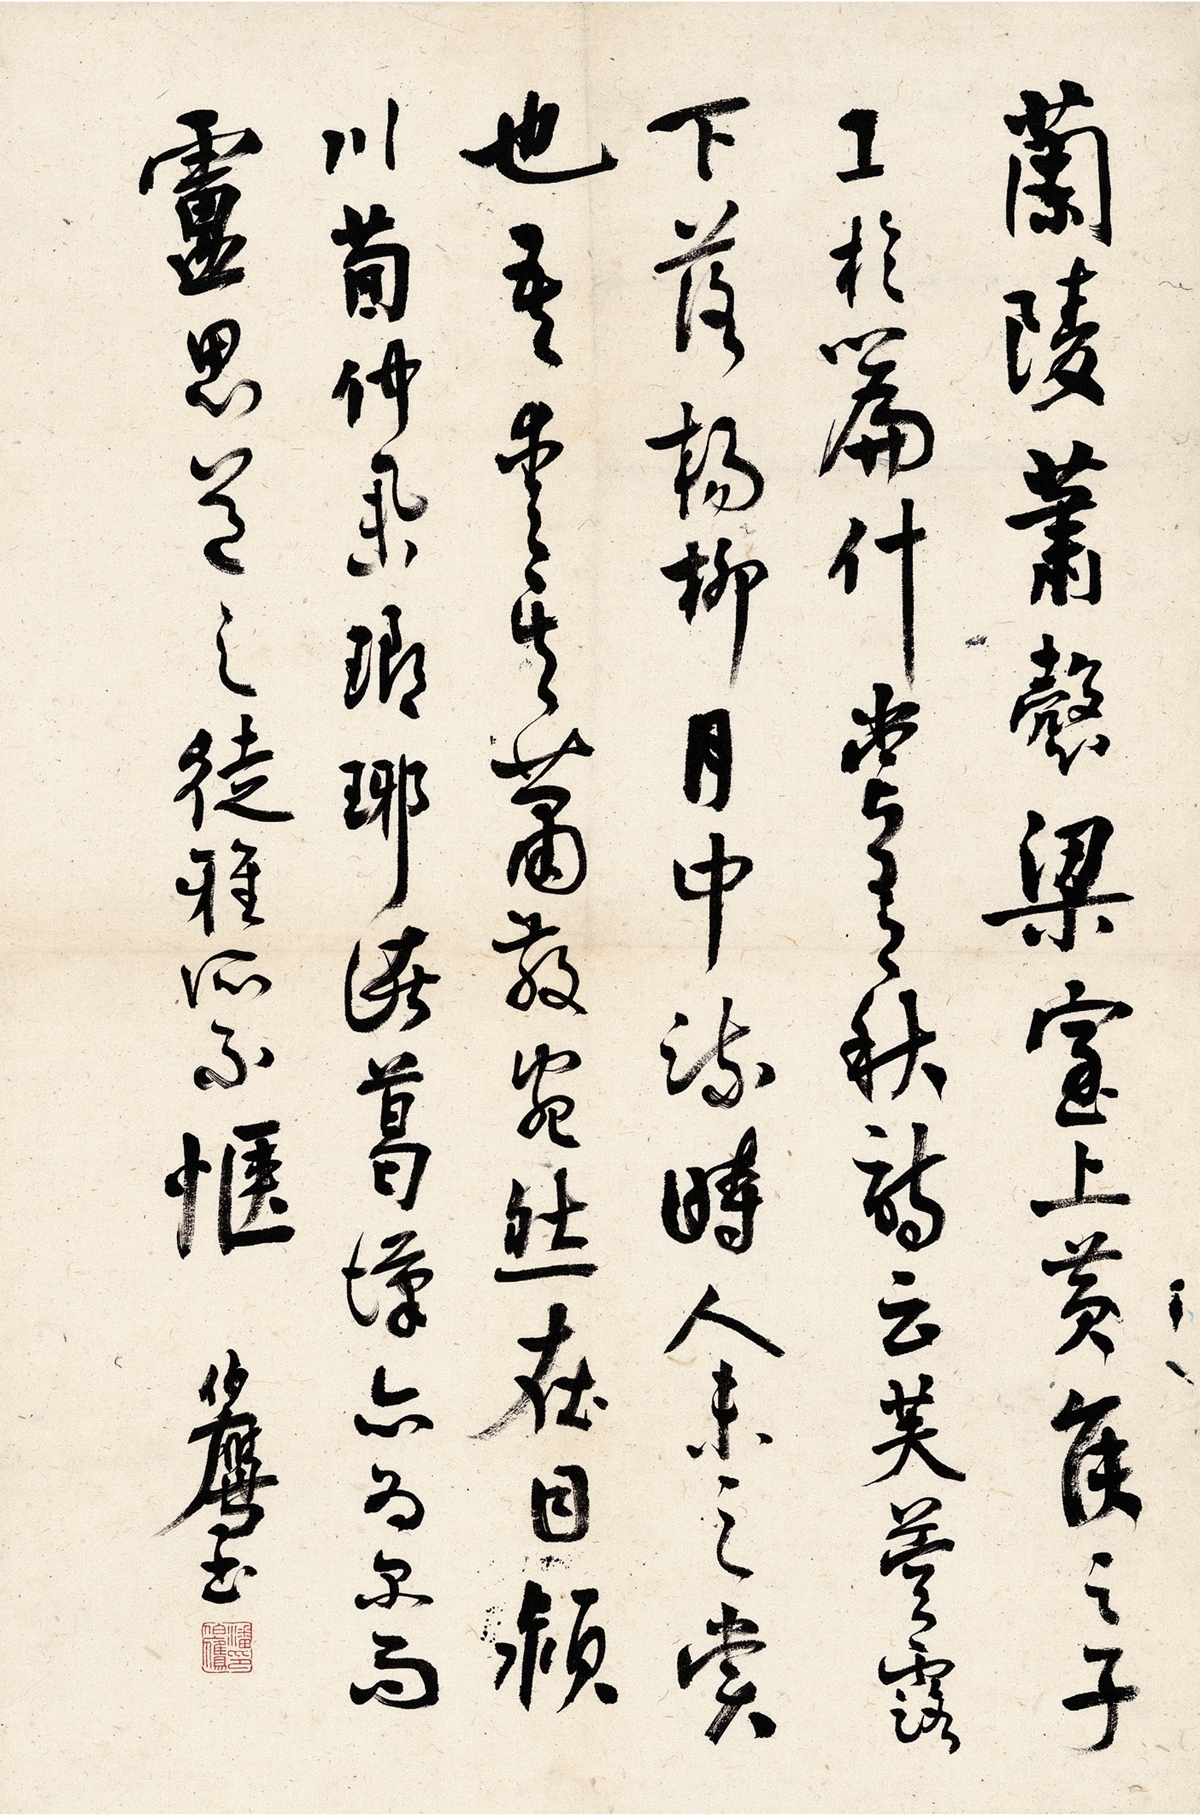 蘭陵蕭愨梁室上黃侯之子
工於篇什嘗有秋詩云芙蓉露
下落楊柳月中疏時人未之賞
也吾愛其蕭散宛然在目潁
川荀仲舉瑯琊諸葛漢亦為尔而
盧思道之徒雅所不愜
伯鷹書
潘印伯鷹